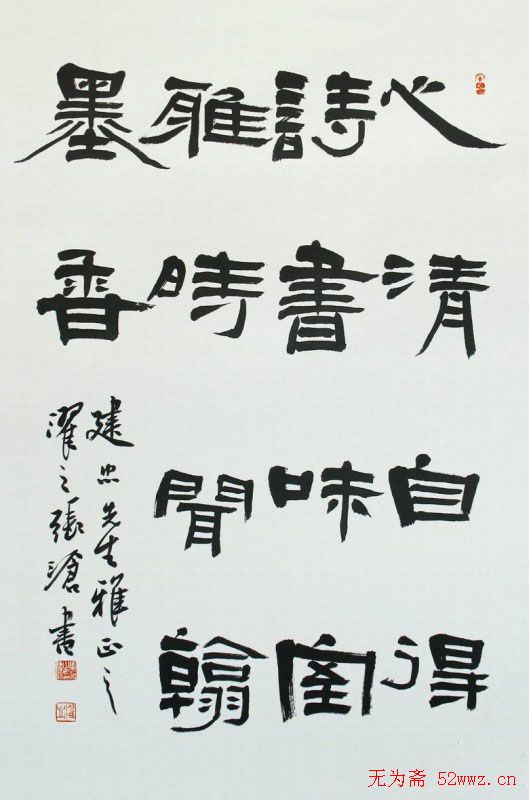 心清自得
詩書味室
雅時聞翰
墨香
建忠先生雅正之
濯之張滄書
无为斋 52wwz.cn